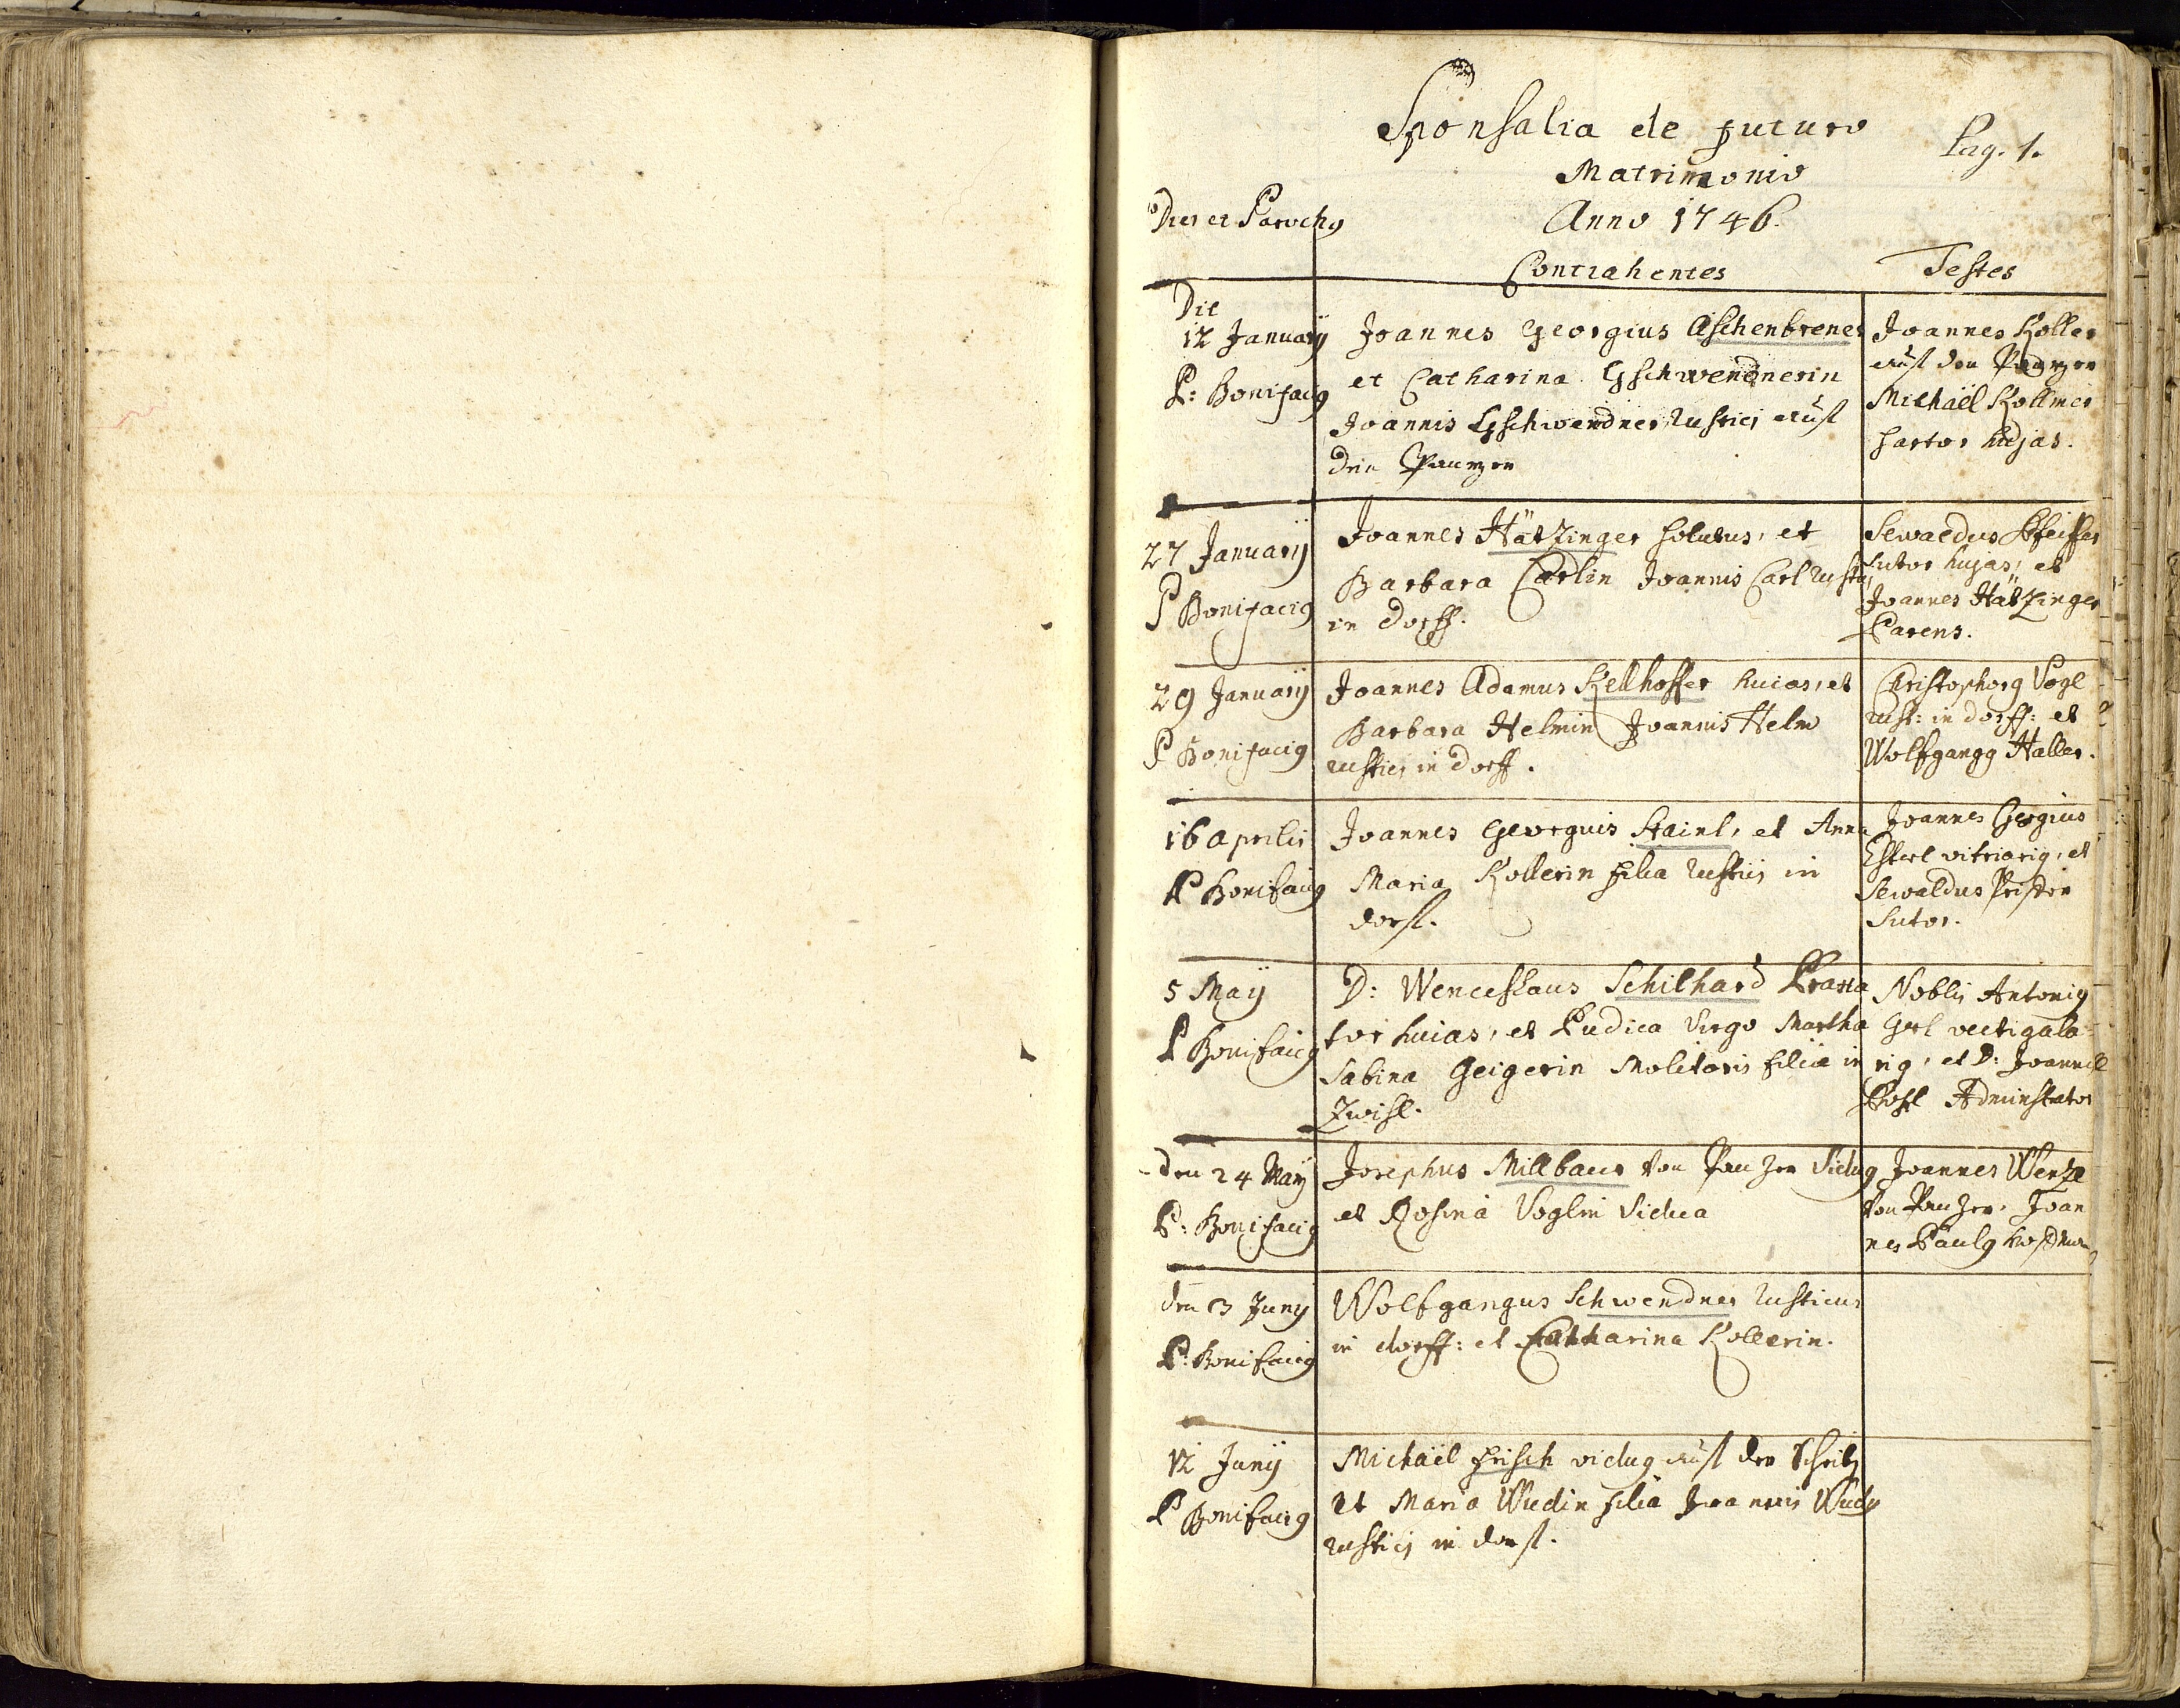 Sponsalia de futuro
Pag. 1.
Matrimonio
Dies et Parochg
Anno 1746.
Contrahentes
Testes
Die
12 Januarij
P: Bonifacig
Joannes Georgius Aschenbrener
et Catharina Gschwendnerin
Joannis Gschwendner rusticj auß
den
Joannes Koller
auß den
Michaël Kollmer
sartor hujas.
27 Januarij
P Bonifacig
Joannes Hätzinger solutus, et
Barbara Carlin Joannis Carl rustici
in dorff.
Sewaldus Pfeiffer
sutor hujas, et
Joannes Hätzinger
Parens.
29 Januarij
P Bonifacig
Joannes Adamus Kellhoffer huias, et
Barbara Helmin Joannis Helm
rusticj in dorff.
Christophorg Vogl
rust: in dorff: et
Wolfgangg Haller.
16 Aprilis
P Bonifacig
Joannes Georgius Stainl, et Anna
Maria Kollerin filia rusticj in
dorf.
Joannes Georgius
Esterl vitriarig, et
Sewaldus
Sutor.
5 Maij
P Bonifacig
D: Wenceslaus Schilhard
tor huias, et Pudica Virgo Martha
Sabina Geigerin Molitoris filia in
Zwisl.
Noblis Antonig
Gerl vectigala-
rig, et D: Joannes
Administrator
den 24 Maij
P: Bonifacig
Josephus Millbaur von Panzer Vidug
et Rosina Voglin Vidua
Joannes Wenzl
von Panzer, Joan
nes Paulg
den 3 Junij
P: Bonifacig
Wolfgangus Schwendner rusticus
in dorff: et Catharina Kollerin.
12 Junij
P Bonifacig
Michaël Frisch vidug auß der
et Maria Wudin filia Joannis Wudy
rusticj in dorf.